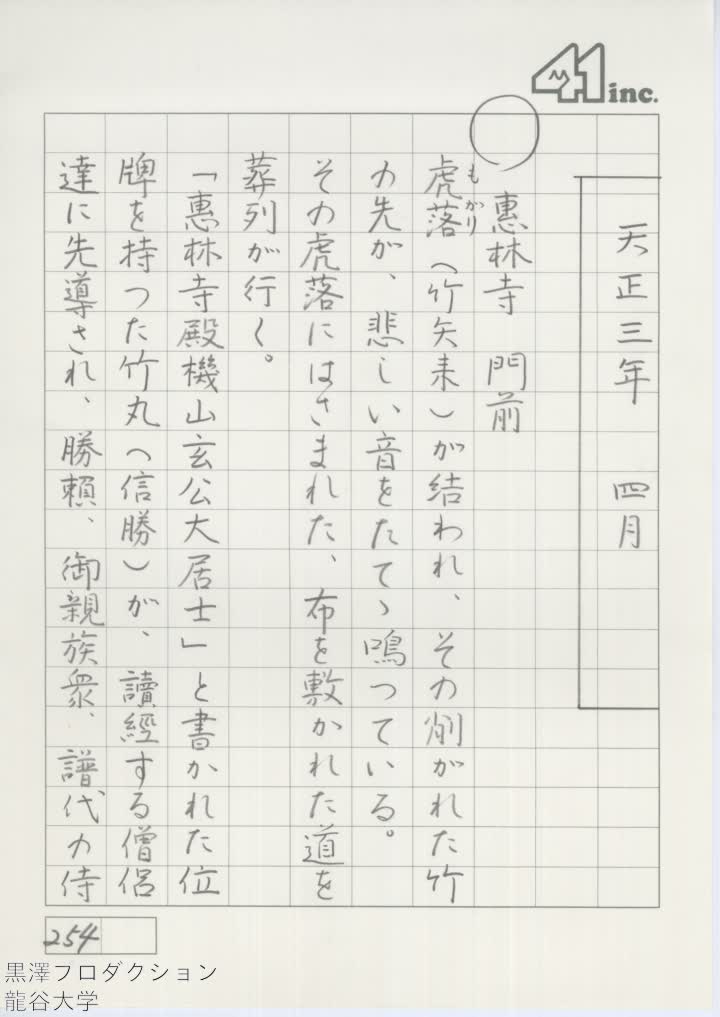 41 inc.
天正三年 四月
惠林寺 門前
虎落(竹矢来)が結われ、その削がれた竹
もがり
の先が、悲しい音をたてゝ鳴つている。
その虎落にはさまれた、布を敷かれた道を
葬列が行く。
「惠林寺殿機山玄公大居士」と書かれた位
牌を持つた竹丸(信勝)が、讀經する僧侶
達に先導され、勝頼、御親族衆、譜代の侍
254
黒澤プロダクション
龍谷大学